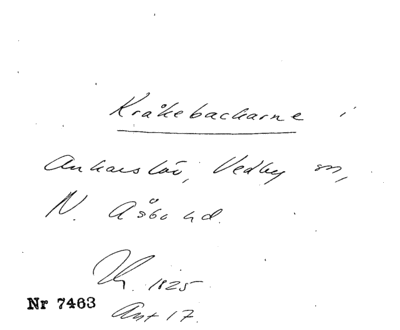 Kråkebackarne i
Ankarslöv, Vedby sn,
N. Åsbo hd.
1825
Nr 7463
Ant 17.